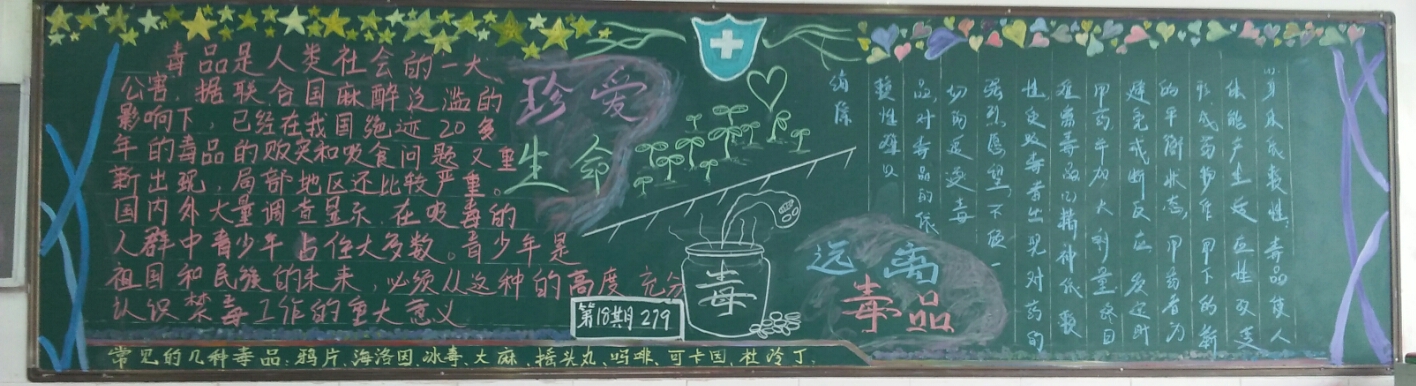 毒品是人类社会的一大
公害,据联合国麻醉泛滥的
影响下,已经在我国绝迹20多
年的毒品的贩卖和吸食问题又重
新出现,局部地区还比较严重。
国内外大量调查显示,在吸毒的
人群中青少年占住大多数。青少年是
祖国和民族的未来,必须从这种的高度充分
认识禁毒工作的重大意义
珍爱
生命
毒
第18期 279
远离
毒品
身及依赖性:毒品使人
体能产生适应性改变
形成药物作用下的新
的平衡状态,
性是吸毒者出现对药的
强烈愿望,不顾一
切的定逐毒
品,对毒品的依
赖性难以
消除
常见的几种毒品:鸦片、海洛因、冰毒、大麻、摇头丸、吗啡、可卡因、杜冷丁、